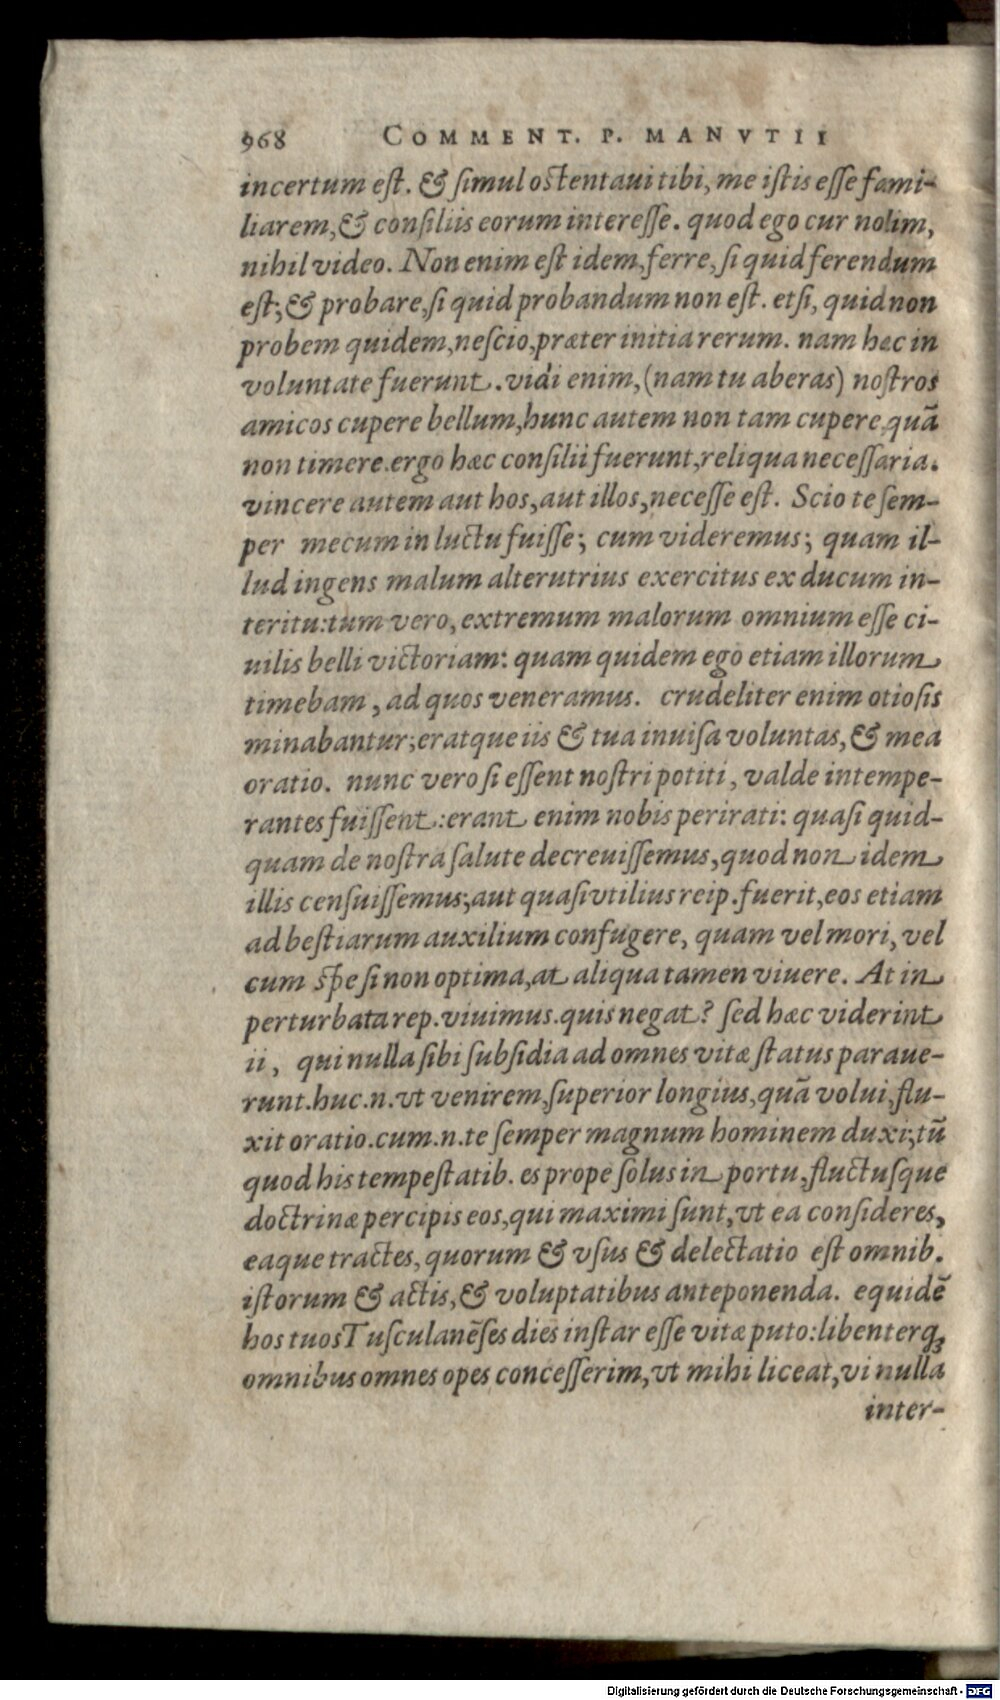 968 COMMENT. P. MANVTII
incertum est. & simul ostentaui tibi, me istis esse fami-
liarem, & consiliis eorum interesse. quod ego cur nolim,
nihil video. Non enim est idem, ferre, si quid ferendum
est; & probare, si quid probandum non est. etsi, quid non
probem quidem, nescio, præter initia rerum. nam hæc in
voluntate fuerunt. vidi enim, (nam tu aberas) nostros
amicos cupere bellum, hunc autem non tam cupere, quā
non timere. ergo hæc consilii fuerunt, reliqua necessaria.
vincere autem aut hos, aut illos, necesse est. Scio te sem-
per mecum in luctu fuisse; cum videremus; quam il-
lud ingens malum alterutrius exercitus ex ducum in-
teritu: tum vero, extremum malorum omnium esse ci-
uilis belli victoriam: quam quidem ego etiam illorum
timebam, ad quos veneramus. crudeliter enim otiosis
minabantur; eratque iis & tua inuisa voluntas, & mea
oratio. nunc vero si essent nostri potiti, valde intempe-
rantes fuissent: erant enim nobis perirati: quasi quid-
quam de nostra salute decreuissemus, quod non idem
illis censuissemus; aut quasi vtilius reip. fuerit, eos etiam
ad bestiarum auxilium confugere, quam vel mori, vel
cum spe si non optima, at aliqua tamen viuere. At in
perturbata rep. viuimus. quis negat? sed hæc viderint
ii, qui nulla sibi subsidia ad omnes vitæ status paraue-
runt. huc .n. vt venirem, superior longius, quā volui, flu-
xit oratio. cum .n. te semper magnum hominem duxi; tū
quod his tempestatib. es prope solus in portu, fluctusque
doctrinæ percipis eos, qui maximi sunt, vt ea consideres,
eaque tractes, quorum & vsus & delectatio est omnib.
istorum & actis, & voluptatibus anteponenda. equidē
hos tuos Tusculanēses dies instar esse vitæ puto: libenterq;
omnibus omnes opes concesserim, vt mihi liceat, vi nulla
inter-
Digitalisierung gefördert durch die Deutsche Forschungsgemeinschaft - DFG